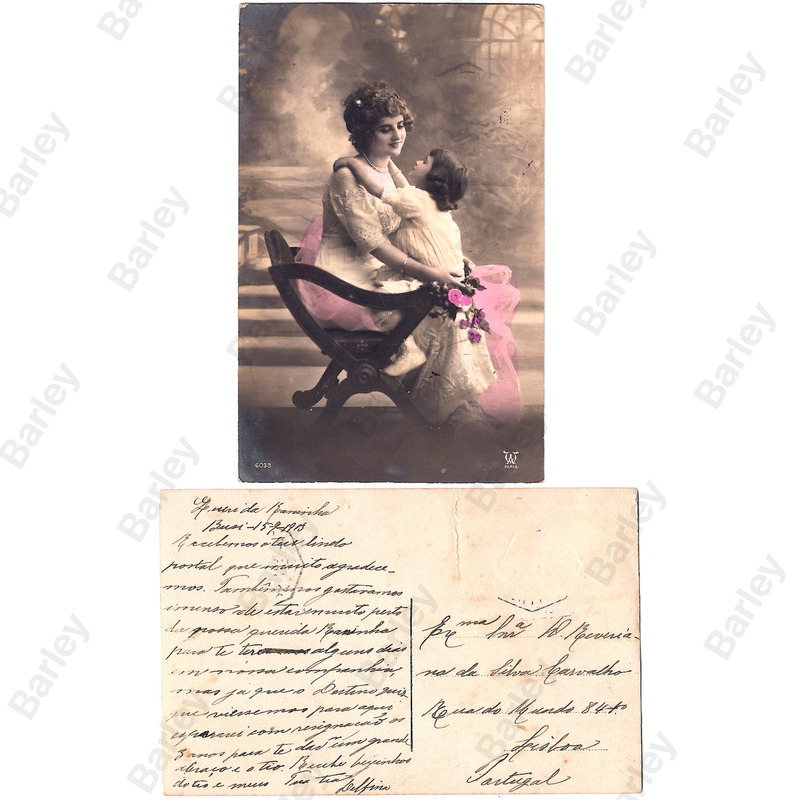 6033
PARIS
Querida Naninha
Buai-15-9-1913
Recebemos o teu lindo
postal que muito agradece-
mos. Tambem nos gostavamos
imenso de estar muito perto
da nossa querida Naninha
para te ter alguns dias
em nossa companhia,
mas já que o Destino quiz
que viessemos para aqui
esperarei com resignação os
3 anos para te dar um grande
abraço e o tio. Recebe beijinhos
do tio e meus Tua tia
Delfina
Exma Snra D. Reveria-
na da Silva Carvalho
Rua do Mundo 84-
Lisboa
Portugal
Barley